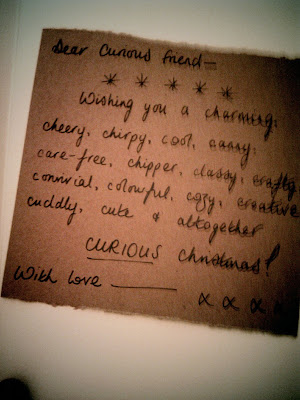 Dear Curious friend—
* * * * *
Wishing you a charming,
cheery, chirpy, cool, canny,
care-free, chipper, classy, crafty
convivial, colourful, cozy, creative
cuddly, cute & altogether
CURIOUS Christmas!
With love
x x x x